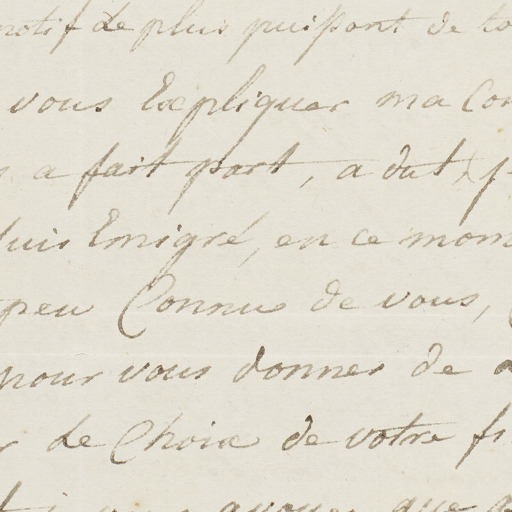 motif de plus puissant de to
vous Expliquer ma Con
s a fait part, a dat
suis Emigré, en ce mom
peu Connu de vous,
pour vous donner de
r de Choix de votre fi
avouer que